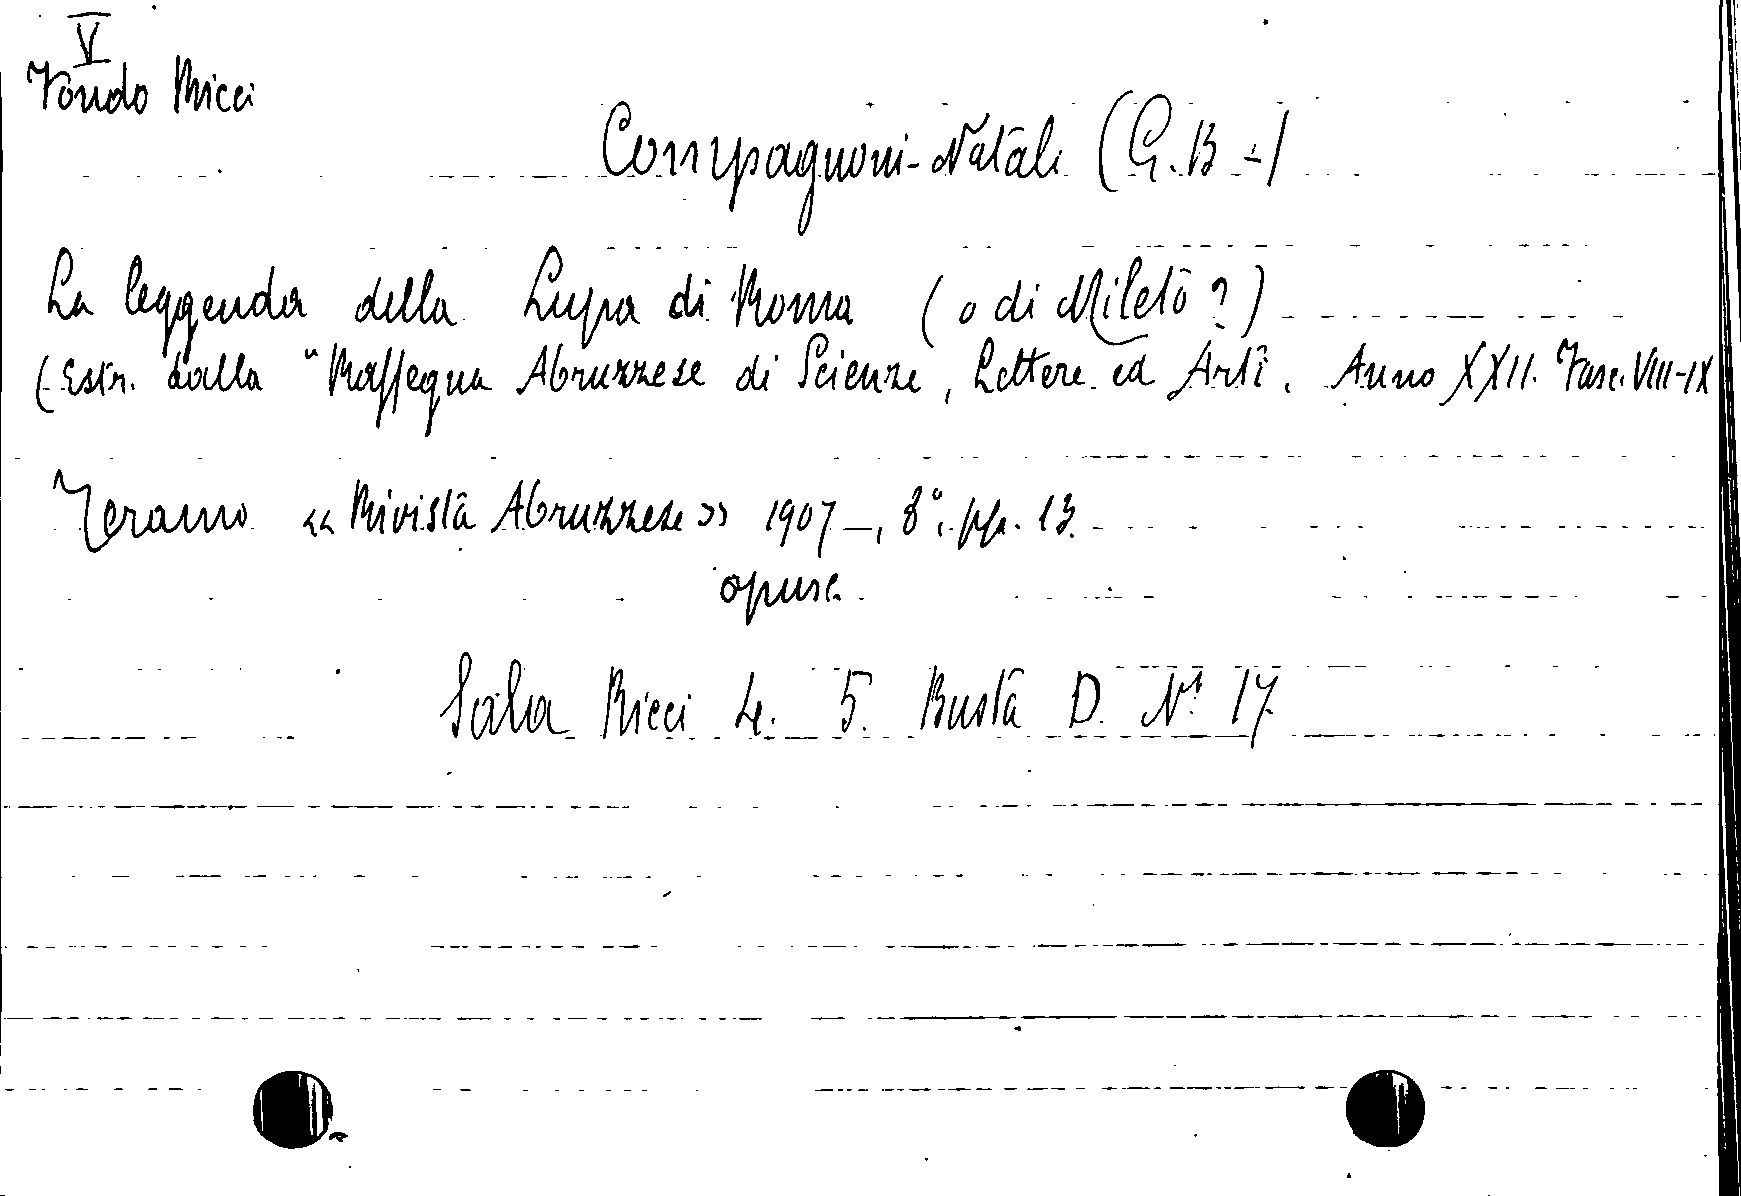 V
Fondo Ricci
Compagnoni-Natali (G.B.-)
La leggenda della Lupa di Roma (o di Mileto?)
(Estr. dalla "Rassegna Abruzzese di Scienze, Lettere ed Arti. Anno XXII. Fasc. VIII-IX
Teramo «Rivista Abruzzese» 1907-, 8°. pp. 13.
opusc.
Sala Ricci 4. 5. Busta D. N° 17